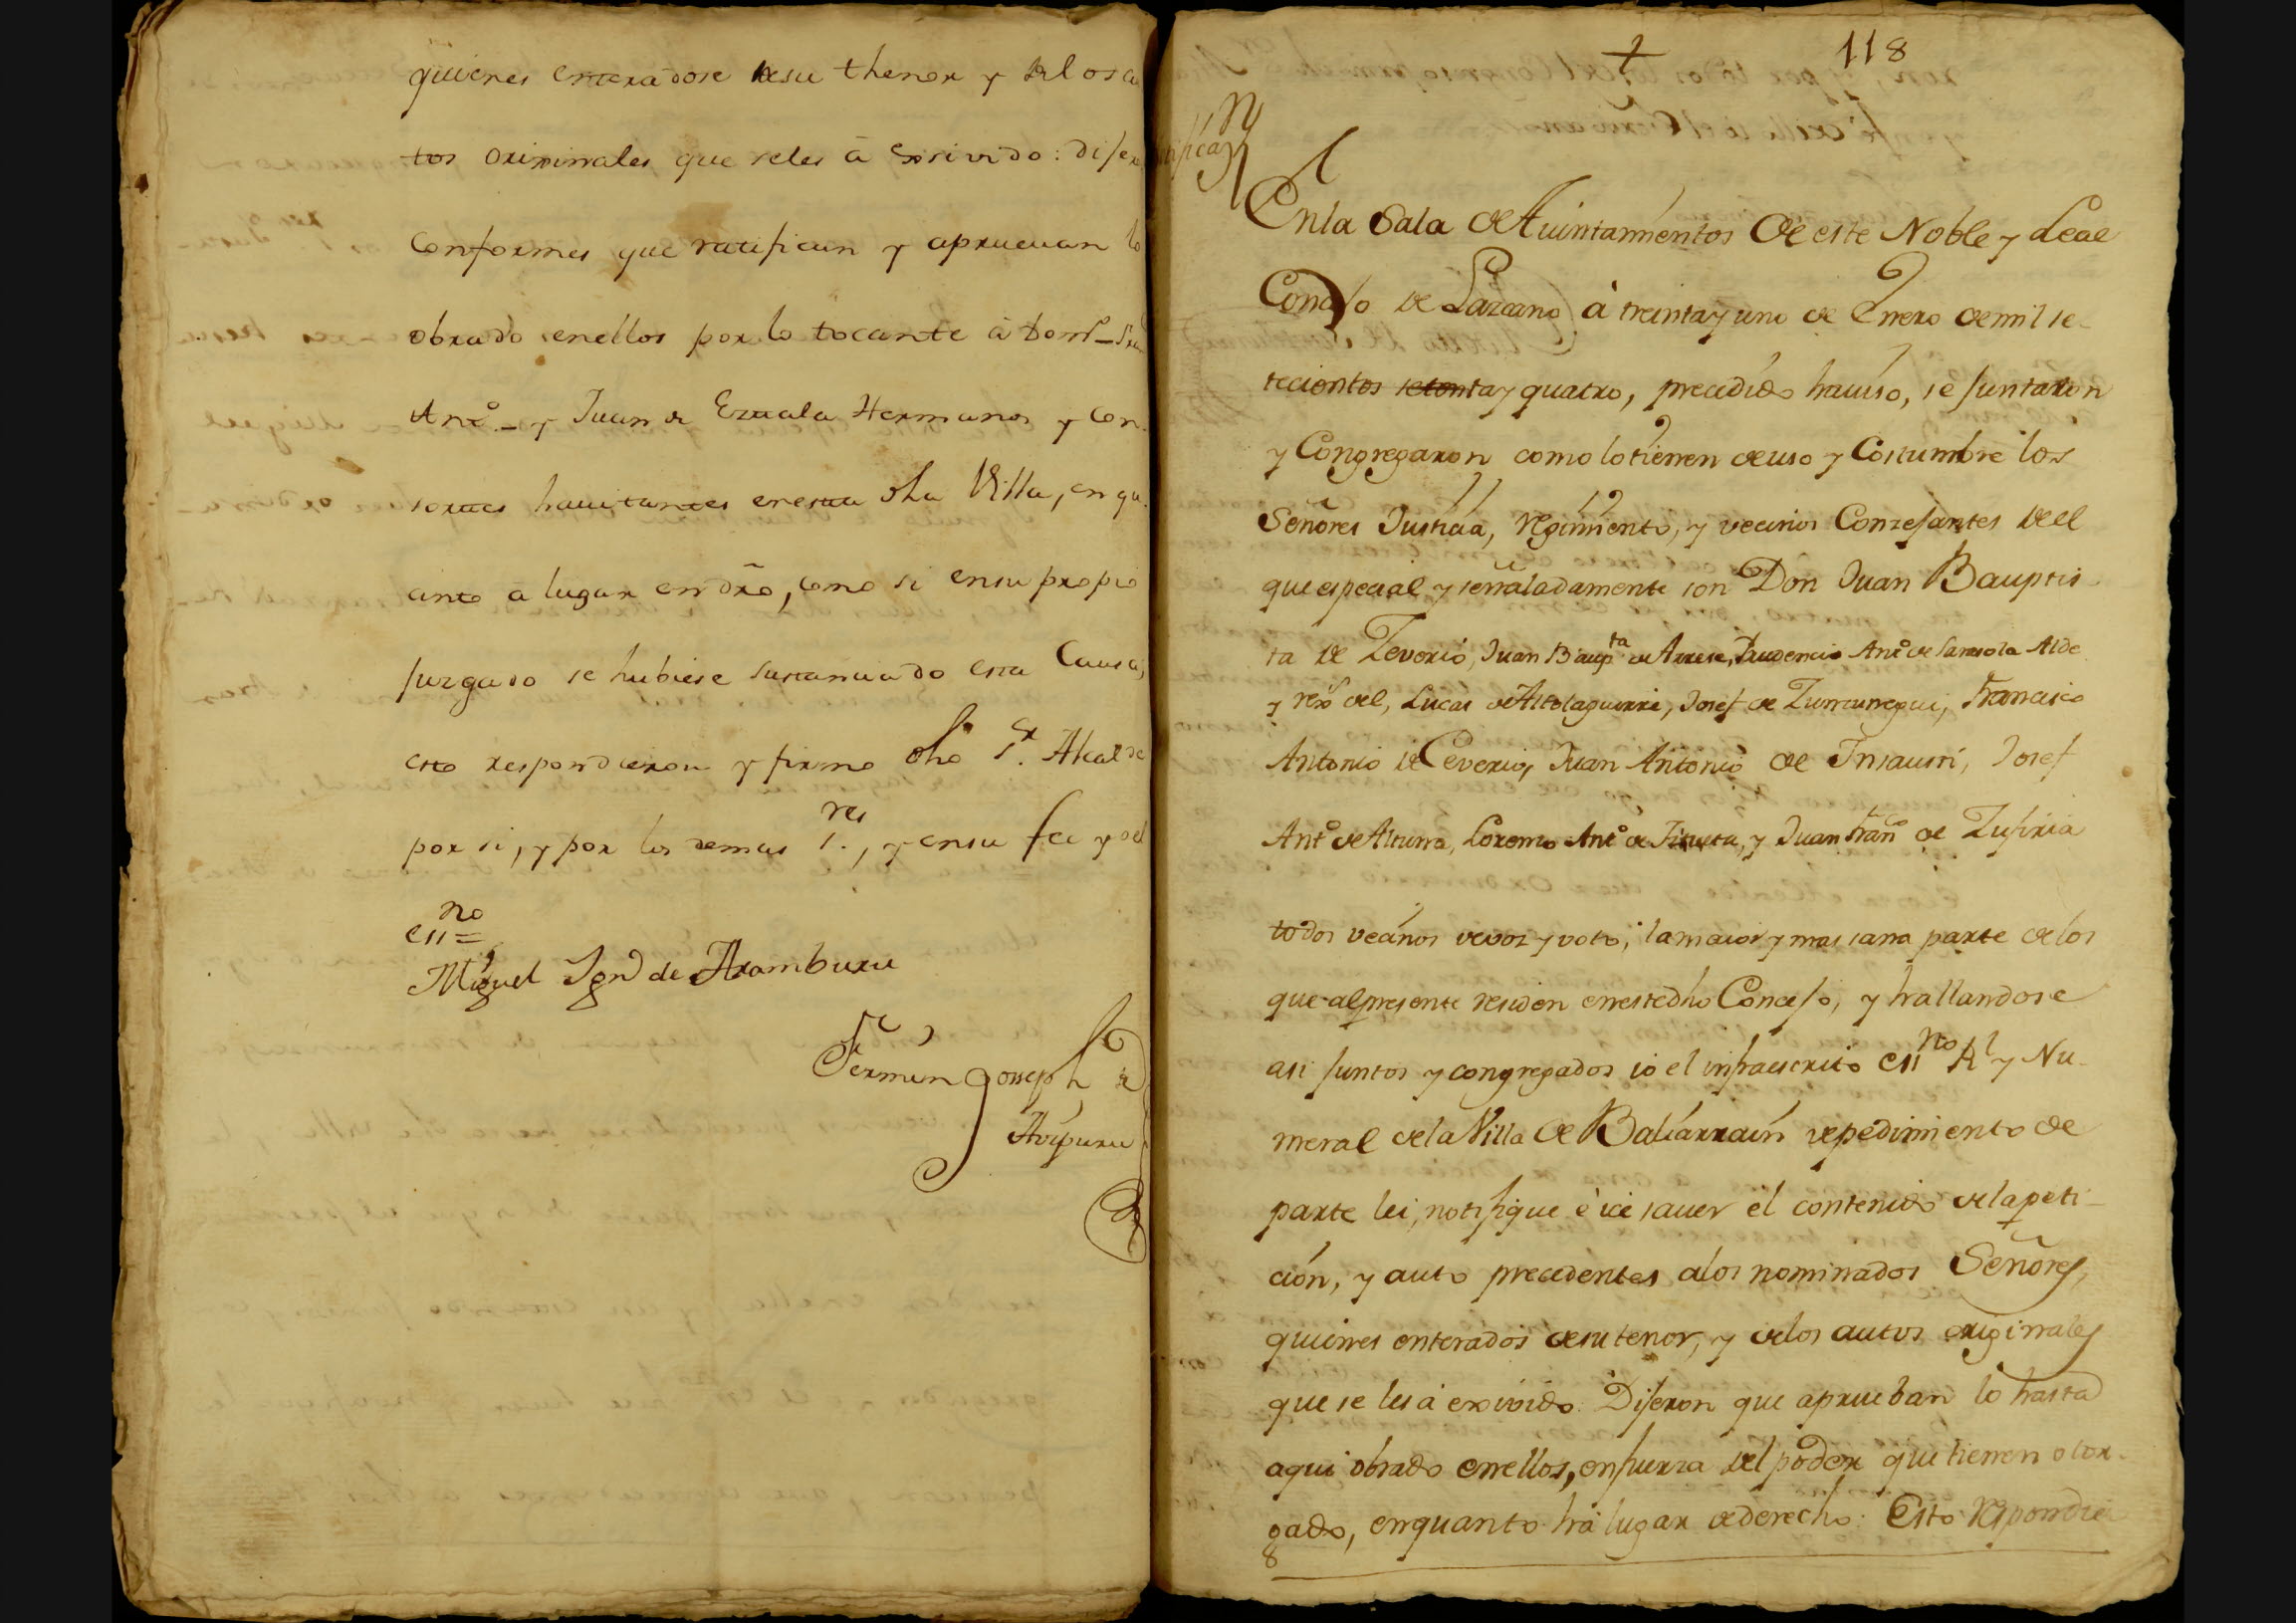 quienes enteradose desu thenor y delos au
tos oriximales que seles á exsivido: dixe
Conformes que ratifican y aprueuan lo
obrado enellos por lo tocante á Dom.º
Ant.º y Juan de Ezcala Hermanos y Con
sortes hauitantes enesta dha Villa, en qu
anto á lugar en dr̃o, como si ensu propio
Juzgado se hubiese sustanciado esta Causa,
esto respondieron y firmo dho S.ᵒʳ Alcalde
por si, y por los demas S.ʳᵉˢ, y ensu fee yo el
essⁿᵒ =
Miguel Ignº de Aramburu
Fermin Joseph de
Aozpuru
118
En la Sala de Auintamientos de este Noble y Leal
Conzejo de Lazcano á treinta y uno de Enero de mil se
tecientos setenta y quatro, precedido hauiso, se juntaron
y Congregaron como lo tienen de uso y Costumbre los
Señores Justicia, regimiento, y vecinos Conzejantes del
que especial y señaladamente son Don Juan Baupti
ta de Zeverio, Juan Baupᵗᵃ de Arrese, Prudencio Antº de Sarasola Alde
y rexº del, Lucas de Altolaguirre, Josef de Zurrunegui, Francisco
Antonio de Ceverio, Juan Antonio de Insausti, Josef
Antº de Altuna, Lorenzo Antº de y Juan Franᶜᵒ de Zufiria
todos vecinos de voz y voto, la maior y mas sana parte de los
que al presente residen en este dho Concejo, y hallandose
asi juntos y congregados io el infraescrito essⁿᵒ Rˡ y Nu
meral de la Villa de Baliarrain de pedimiento de
parte lei, notifique é ice sauer el contenido de la peti
ción, y auto precedentes a los nominados Señores,
quienes enterados de su tenor, y de los autos originales
que se les á exivido: Dijeron que aprueban lo hasta
aqui obrado en ellos, en fuerza del poder que tienen otor
gado, en quanto há lugar de derecho: Esto respondie